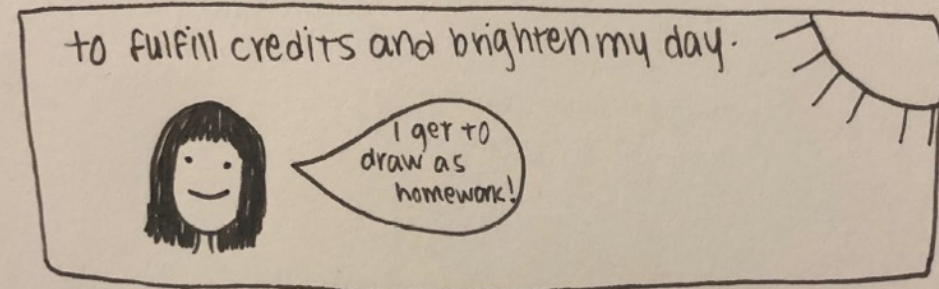 to fulfill credits and brighten my day.
I get to
draw as
homework!